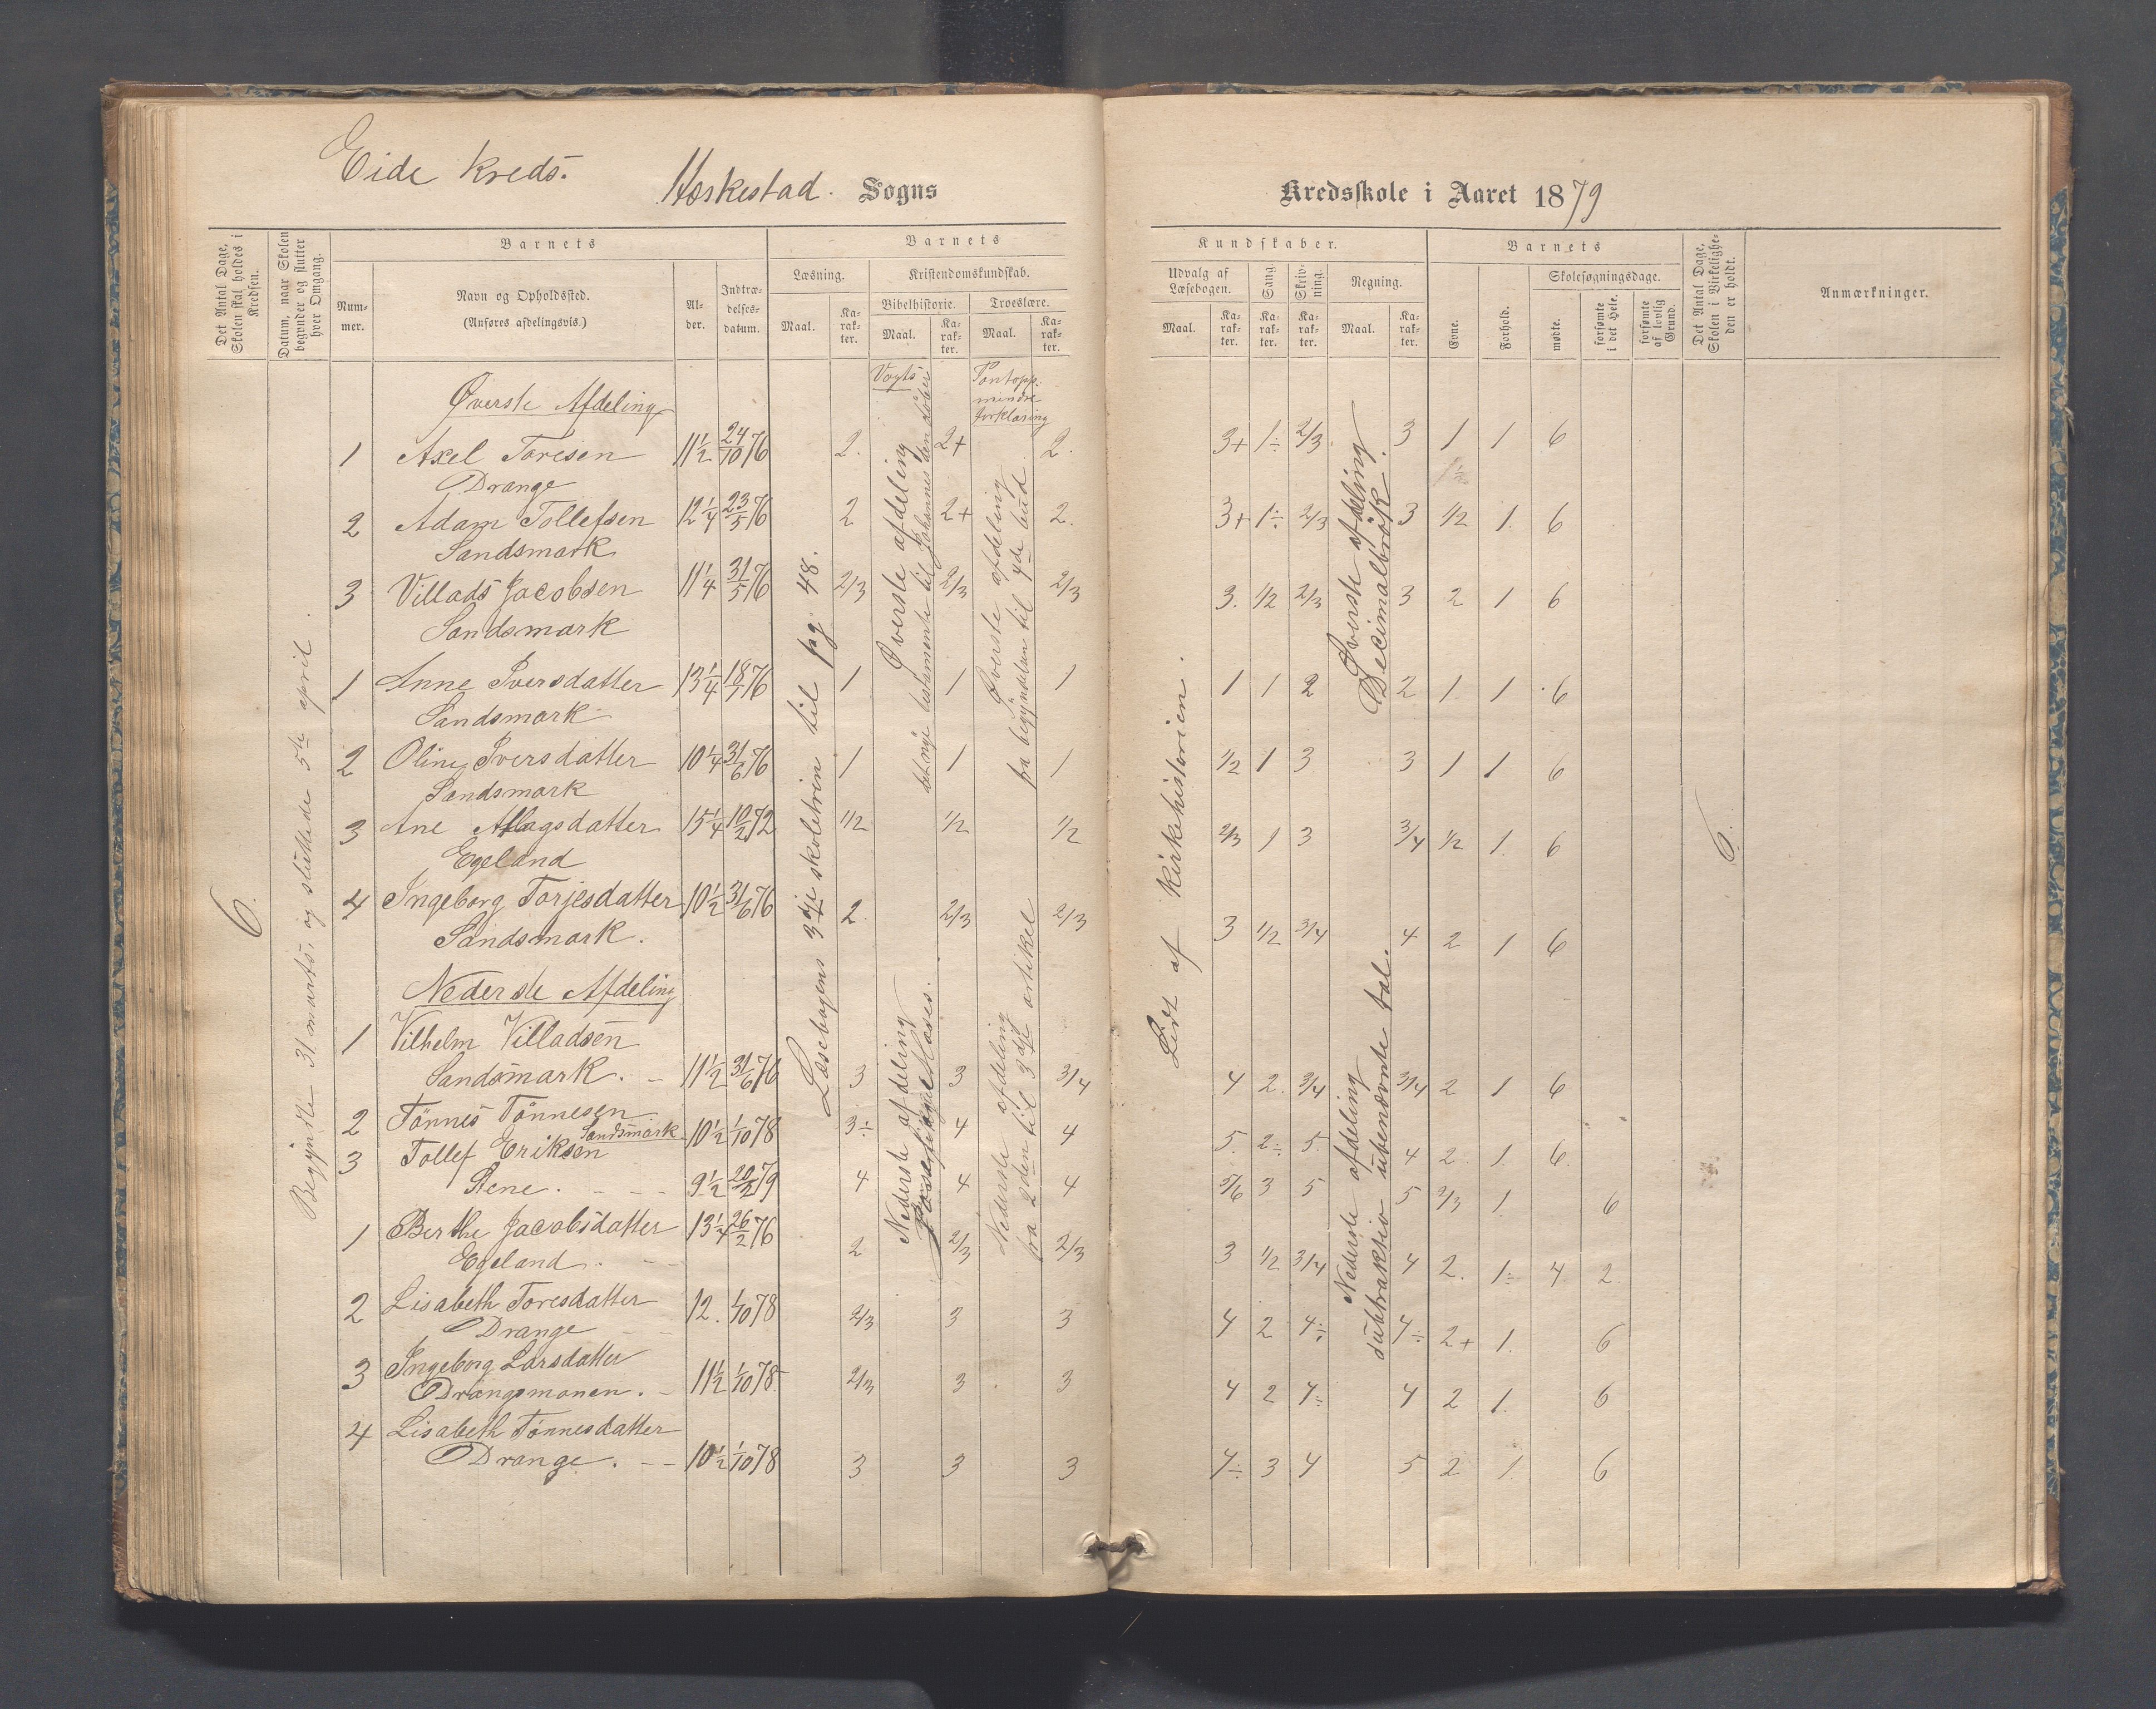 Eide kreds.
Heskestad. Sogns
Kredsskole i Aaret 1879
Det Antal Dage, Skolen skal holdes i Kredsen.
Datum, naar Skolen begynder og slutter hver Omgang.
Barnets
Nummer.
Navn og Opholdssted.
(Anføres afdelingsvis.)
Alder.
Indtrædelsesdatum.
Barnets
Læsning.
Kristendomskundskab.
Bibelhistorie.
Troeslære.
Maal.
Karakter.
Maal.
Karakter.
Maal.
Karakter.
Kundskaber.
Udvalg af Læsebogen.
Sang
Skrivning.
Regning.
Maal.
Karakter.
Karakter.
Karakter.
Maal.
Karakter.
Barnets
Evne.
Forhold.
Skolesøgningsdage.
mødte.
forsømte i det Hele.
forsømte af lovlig Grund.
Det Antal Dage, Skolen i Virkeligheden er holdt.
Anmærkninger.
6.
Begyndte 31 marts, og sluttede 5te april.
Læsebogens 3dje skoletrin til pag. 48.
Vogts
Øverste afdeling
det nye testamente til Johannes den døber
Nederste afdeling
Moses.
Pontopp. mindre forklaring
Øverste afdeling
fra begyndelsen til 4de bud
Nederste afdeling
fra 2den til 3dje artikel
Lidt af kirkehistorien.
Øverste afdeling
Decimalbrøk.
Nederste afdeling
subtraksion ubenævnte tal.
6.
Øverste Afdeling
1 Axel Toresen 11½ 24/10 76 2. 2+ 2. 3+ 1÷ 2/3. 3 1 1 6
Drange
2 Adam Tollefsen 12¼ 23/5 76 2 2+ 2. 3+ 1÷ 2/3 3 1/2 1. 6
Sandsmark
3 Villads Jacobsen 11¼ 31/5 76 2/3 2/3 2/3 3. 1/2 2/3 3 2 1 6
Sandsmark
1 Anne Iversdatter 13¼ 18/1 76 1 1 1 1 1 2 2 1. 1. 6
Sandsmark
2 Oline Iversdatter 10¼ 31/6 76 1 1 1 1/2 1 3 3 1 1 6
Sandsmark
3 Ane Aslagsdatter 15¼ 10/2 72 1/2 1/2 1/2 2/3 1 3 3/4 1/2 1. 6
Egeland
4 Ingeborg Torjesdatter 10½ 31/6 76 2. 2/3 2/3 3 1/2 3/4 4 2 1 6
Sandsmark.
Nederste Afdeling
1 Vilhelm Villadsen
Sandsmark. 11½ 31/6 76 3 3 3/4 4 2. 3/4 3/4 2 1 6
2 Tönnes Tönnesen
Sandsmark 10½ 1/10 78 3÷ 4 4 5. 2÷ 5. 4 2. 1. 6.
3 Tollef Eriksen
Stene. 9½ 20/2 79 4 4 4 5/6 3 5 5 2/3 1. 6
1 Berthe Jacobsdatter 13¼ 26/2 76
Egeland. 2 2/3 2/3 3 1/2 3/4 4 2. 1÷ 4 2.
2 Lisabeth Toresdatter 12. 1/10 78 2/3 3 3 4 2 4÷ 4÷ 2+ 1. 6
Drange
3 Ingeborg Larsdatter
Drangsmonen. 11½ 1/10 78 2/3 3 3 4 2 4÷ 4 2 1. 6
4 Lisabeth Tönnesdatter
Drange. 10½ 1/10 78 3 3 3 4÷ 3 4 5 2 1. 6